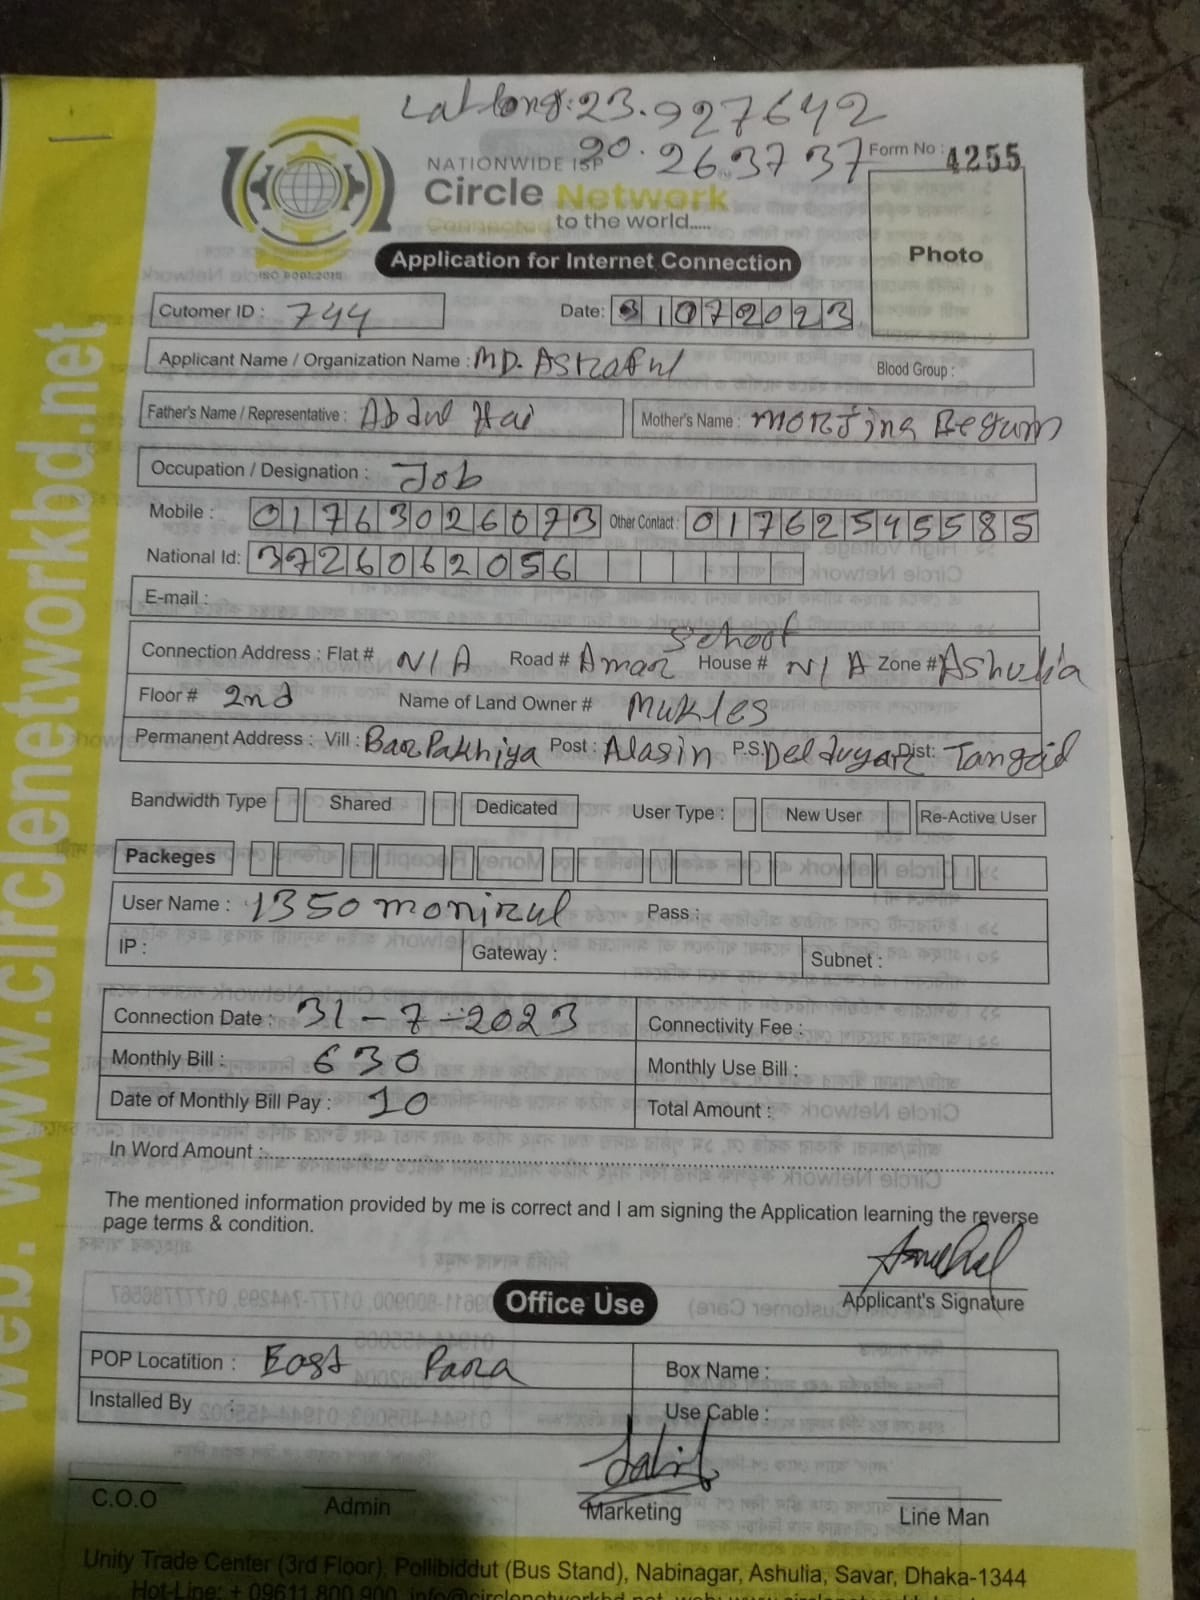 Lat long: 23.927642
90.263737
NATIONWIDE ISP
Circle Network
Connected to the world.....
ISO 9001:2015
Form No : 4255
Photo
Application for Internet Connection
Cutomer ID : 744 Date: 31072023
Applicant Name / Organization Name : MD. Ashraful Blood Group :
Father's Name / Representative : Abdul Hai Mother's Name : Morjina Begum
Occupation / Designation : Job
Mobile : 01763026073 Other Contact : 01762545585
National Id: 3726062056
E-mail :
Connection Address : Flat # N/A Road # Aman School House # N/A Zone # Ashulia
Floor # 2nd Name of Land Owner # Mukles
Permanent Address : Vill : BarPakhiya Post : Alasin P.S: Delduyar Dist: Tangail
Bandwidth Type Shared Dedicated User Type : New User Re-Active User
Packeges
User Name : 1350monirul Pass :
IP : Gateway : Subnet :
Connection Date : 31-7-2023 Connectivity Fee :
Monthly Bill : 630 Monthly Use Bill :
Date of Monthly Bill Pay : 10 Total Amount :
In Word Amount :
The mentioned information provided by me is correct and I am signing the Application learning the reverse
page terms & condition.
Applicant's Signature
Office Use
POP Locatition : East Para Box Name :
Installed By : Use Cable :
C.O.O Admin Marketing Line Man
Unity Trade Center (3rd Floor), Pollibiddut (Bus Stand), Nabinagar, Ashulia, Savar, Dhaka-1344
Hot-Line: + 09611 800 900, info@circlenetworkbd.net, web: www.circlenetworkbd.net
web: www.circlenetworkbd.net